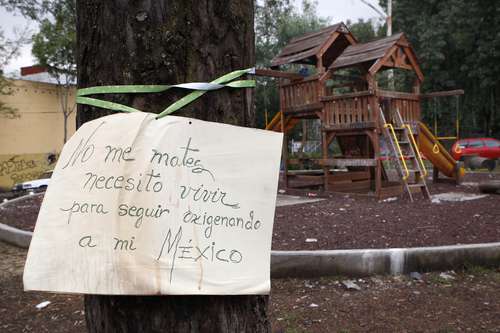 No me mates
necesito vivir
para seguir oxigenando
a mi México